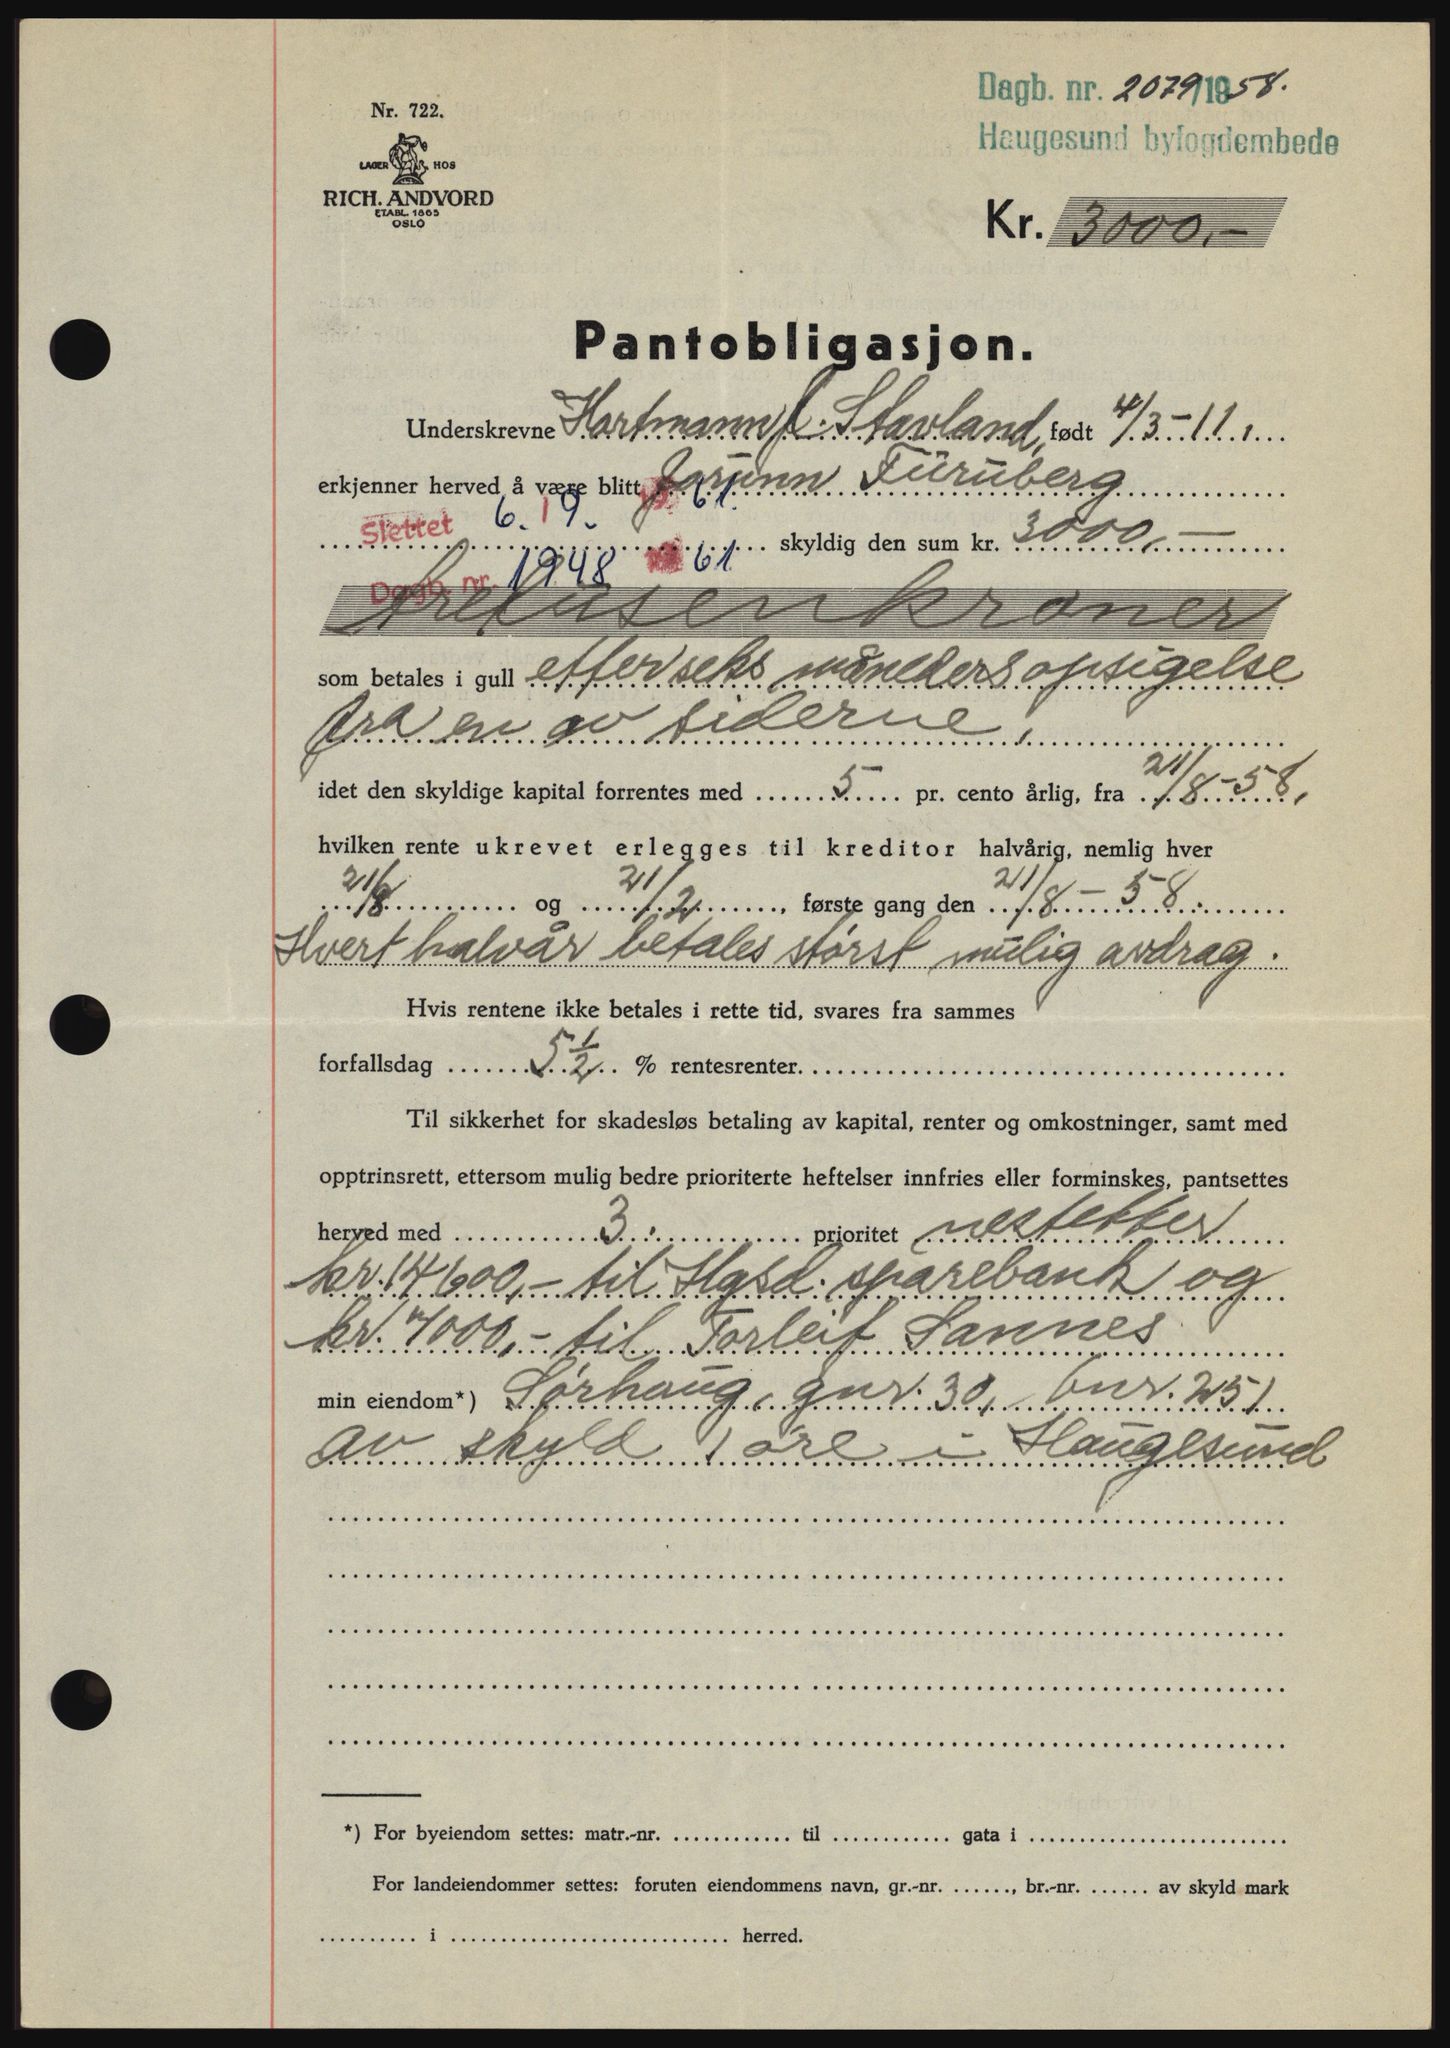 Dagb. nr. 2079/1958.
Haugesund byfogdembede
Nr. 722.
LAGER HOS
RICH. ANDVORD
ETABL. 1865
OSLO
Kr. 3000,-
Pantobligasjon.
Underskrevne Hartmann Stavland, født 4/3-11,
erkjenner herved å være blitt Jorunn Furuberg
Slettet 6. 19. 61.
skyldig den sum kr. 3000,-
Dagb. nr. 1948 61.
tretusenkroner
som betales i gull efter seks måneders opsigelse
fra en av siderne,
idet den skyldige kapital forrentes med 5 pr. cento årlig, fra 21/8-58,
hvilken rente ukrevet erlegges til kreditor halvårig, nemlig hver
21/8 og 21/2, første gang den 21/8-58.
Hvert halvår betales størst mulig avdrag.
Hvis rentene ikke betales i rette tid, svares fra sammes
forfallsdag 5 1/2 % rentesrenter.
Til sikkerhet for skadesløs betaling av kapital, renter og omkostninger, samt med
opptrinsrett, ettersom mulig bedre prioriterte heftelser innfries eller forminskes, pantsettes
herved med 3. prioritet nestetter
kr. 14600,- til Hgsd. sparebank og
kr. 7000,- til Torleif Sannes
min eiendom*) Sørhaug, gnr. 30, bnr. 251
av skyld 1 øre i Haugesund
*) For byeiendom settes: matr.-nr. ............ til ............ gata i ..........................
For landeiendommer settes: foruten eiendommens navn, gr.-nr. ......, br.-nr. ...... av skyld mark
.......... i ............................ herred.